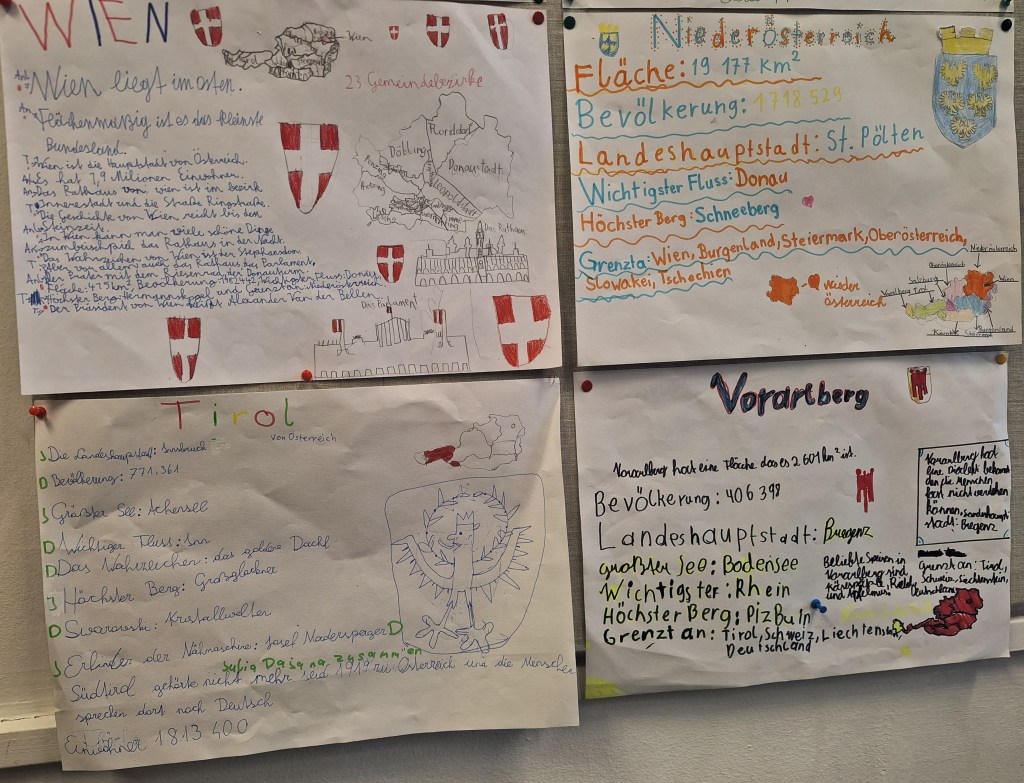 WIEN
Wien
23 Gemeindebezirke
Wien liegt im osten.
Flächenmäßig ist es das kleinste
Bundesland.
Wien ist die Hauptstadt von Österreich.
Es hat 1,9 Milionen Einwohner.
Das Rathaus von wien ist im bezirk
Innerestadt und die Straße Ringstraße.
Die Geschichte von Wien reicht bis den
steinzeit.
In Wien kann man viele schöne Dinge
zumbischpiel das Rathaus in der Nacht.
Das Wahrzeichen von Wien ist der Stephansdom
Aber von allem auch das Rathaus, das Parlament,
der Prater mit dem Riesenrad, der Donauturm.
Höchster Berg: Hermannskogel und Grenzt an: Niederösterreich
Der Präsident von Wien heißt Alexander Van der Bellen.
Floridsdorf
Döbling
Donaustadt
Leopoldstadt
Das Rathaus
Das Parlament
Niederösterreich
Fläche: 19 177 Km²
Bevölkerung: 1718 529
Landeshauptstadt: St. Pölten
Wichtigster Fluss: Donau
Höchster Berg: Schneeberg
Grenzta: Wien, Burgenland, Steiermark, Oberösterreich,
Slowakei, Tschechien
= Nieder
österreich
Niederösterreich
Salzburg
Vorarlberg Tirol
Wien
Burgenland
Tirol
von Österreich
J Die Landeshauptstatt: Innsbruck
D Bevölkerung: 771.361
J Größter See: Achensee
D Wichtiger Fluss: Inn
D Das Wahrzeichen: das goldene Dachl
J Höchster Berg: Großglockner
D Swarowski: Kristallwelten
J Erfinder der Nähmaschine: Josef Madersperger D
Südtirol gehörte nicht mehr seid 1919 zu Österreich und die Menschen
sprechen dort noch Deutsch
Einwohner 1813 400
Vorarlberg
Vorarlberg hat eine Fläche das es 2 601 km² ist.
Bevölkerung: 406 398
Landeshauptstadt: Bregenz
größter See: Bodensee
Wichtigster: Rhein
Höchster Berg: Piz Buin
Grenzt an: Tirol, Schweiz, Liechtenstein
Deutschland
Vorarlberg hat
eine Dialekt bekannt
den die Menschen
fast nicht verstehen
können,
stadt: Bregenz
Beliebte Speisen in
Vorarlberg sind
und Apfelmus.
Grenzt an: Tirol,
Schweiz, Liechtenstein,
Deutschland